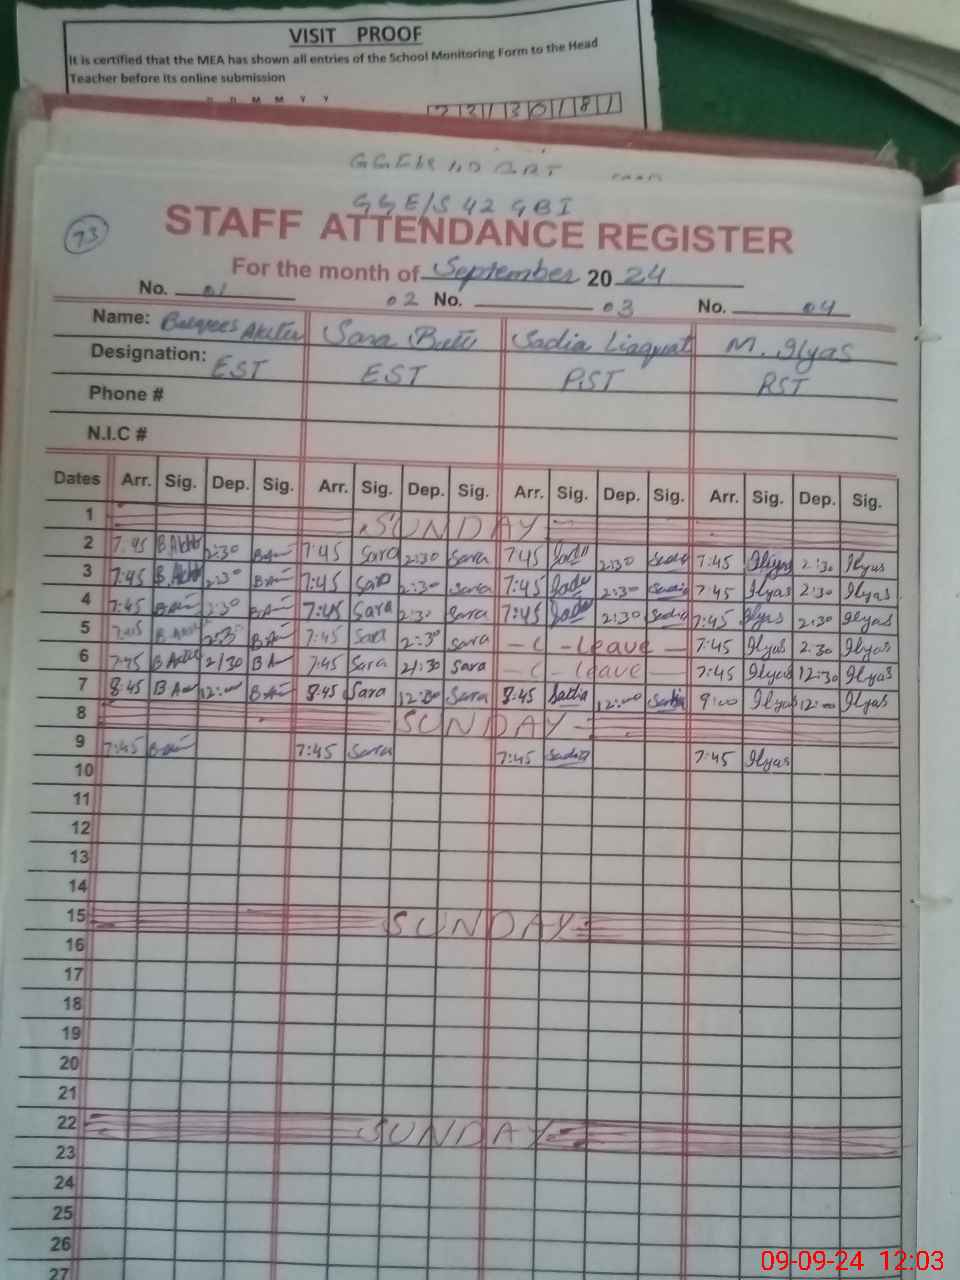 VISIT PROOF
It is certified that the MEA has shown all entries of the School Monitoring Form to the Head
Teacher before its online submission
D D M M Y Y
GGE/S 42 GBI
73
STAFF ATTENDANCE REGISTER
For the month of September 20 24
No. 01 02 No. 03 No. 04
Name: Sara Butt Sadia Liaquat M. Ilyas
Designation: EST EST PST
Phone #
N.I.C #
Dates Arr. Sig. Dep. Sig. Arr. Sig. Dep. Sig. Arr. Sig. Dep. Sig. Arr. Sig. Dep. Sig.
1 SUNDAY
2 7:45 2:30 7:45 Sara 2:30 Sara 7:45 Sadia 2:30 Sadia 7:45 Ilyas 2:30 Ilyas
3 7:45 2:30 7:45 Sara 2:30 Sara 7:45 Sadia 2:30 Sadia 7:45 Ilyas 2:30 Ilyas
4 7:45 2:30 7:45 Sara 2:30 Sara 7:45 Sadia 2:30 Sadia 7:45 Ilyas 2:30 Ilyas
5 7:45 2:30 7:45 Sara 2:30 Sara Leave 7:45 Ilyas 2:30 Ilyas
6 7:45 7:45 Sara Sara Leave 7:45 Ilyas 12:30 Ilyas
7 8:45 12:00 8:45 Sara 12:00 Sara 8:45 Sadia 12:00 Sadia 9:00 Ilyas 12:00 Ilyas
8 SUNDAY
9 7:45 7:45 Sara 7:45 Sadia 7:45 Ilyas
10
11
12
13
14
15 SUNDAY
16
17
18
19
20
21
22 SUNDAY
23
24
25
26
27
09-09-24 12:03